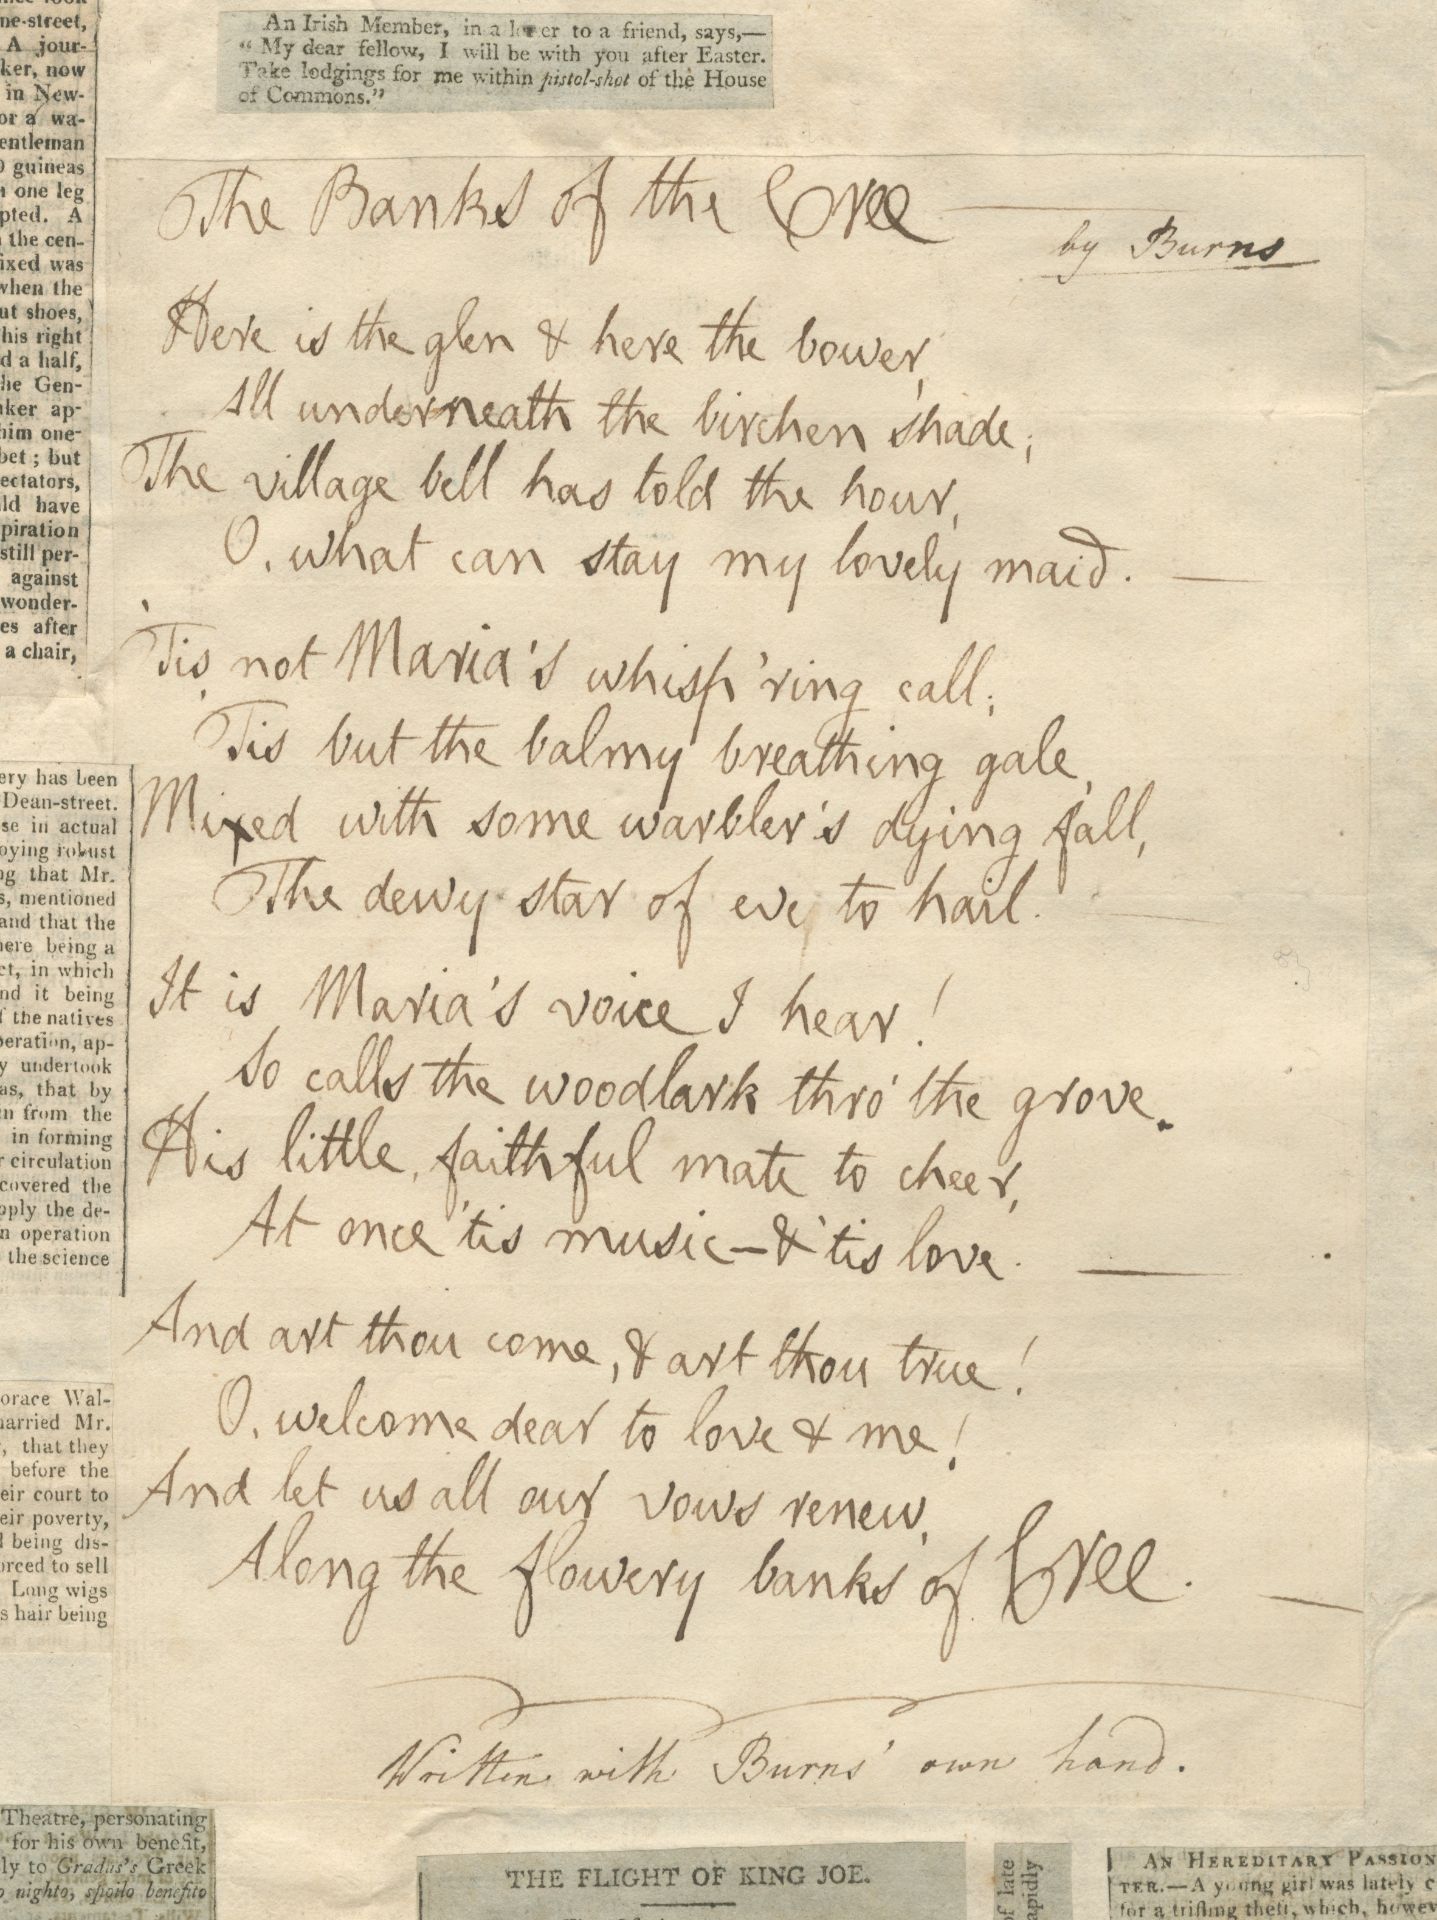 An Irish Member, in a letter to a friend, says,—
"My dear fellow, I will be with you after Easter.
Take lodgings for me within pistol-shot of the House
of Commons."
The Banks of the Cree
by Burns
Here is the glen & here the bower,
All underneath the birchen shade;
The village bell has told the hour,
O, what can stay my lovely maid.
'Tis not Maria's whisp'ring call;
'Tis but the balmy breathing gale,
Mixed with some warbler's dying fall,
The dewy star of eve to hail.
It is Maria's voice I hear!
So calls the woodlark thro' the grove.
His little, faithful mate to cheer,
At once 'tis music — & 'tis love.
And art thou come, & art thou true!
O, welcome dear to love & me!
And let us all our vows renew,
Along the flowery banks of Cree.
Written with Burns' own hand.
ne-street,
A jour-
ker, now
in New-
or a wa-
entleman
0 guineas
n one leg
pted. A
the cen-
ixed was
when the
ut shoes,
his right
d a half,
he Gen-
aker ap-
him one-
bet; but
ectators,
uld have
piration
still per-
against
wonder-
es after
a chair,
ery has been
Dean-street.
se in actual
oying robust
ng that Mr.
s, mentioned
and that the
here being a
ct, in which
nd it being
f the natives
peration, ap-
y undertook
as, that by
n from the
in forming
r circulation
covered the
pply the de-
n operation
the science
orace Wal-
married Mr.
, that they
before the
eir court to
eir poverty,
l being dis-
orced to sell
Long wigs
s hair being
Theatre, personating
for his own benefit,
ly to Gradus's Greek
o nighto, spoilo benefito
THE FLIGHT OF KING JOE.
of late
apidly
AN HEREDITARY PASSION
TER.—A young girl was lately c
for a trifling theft, which, howev